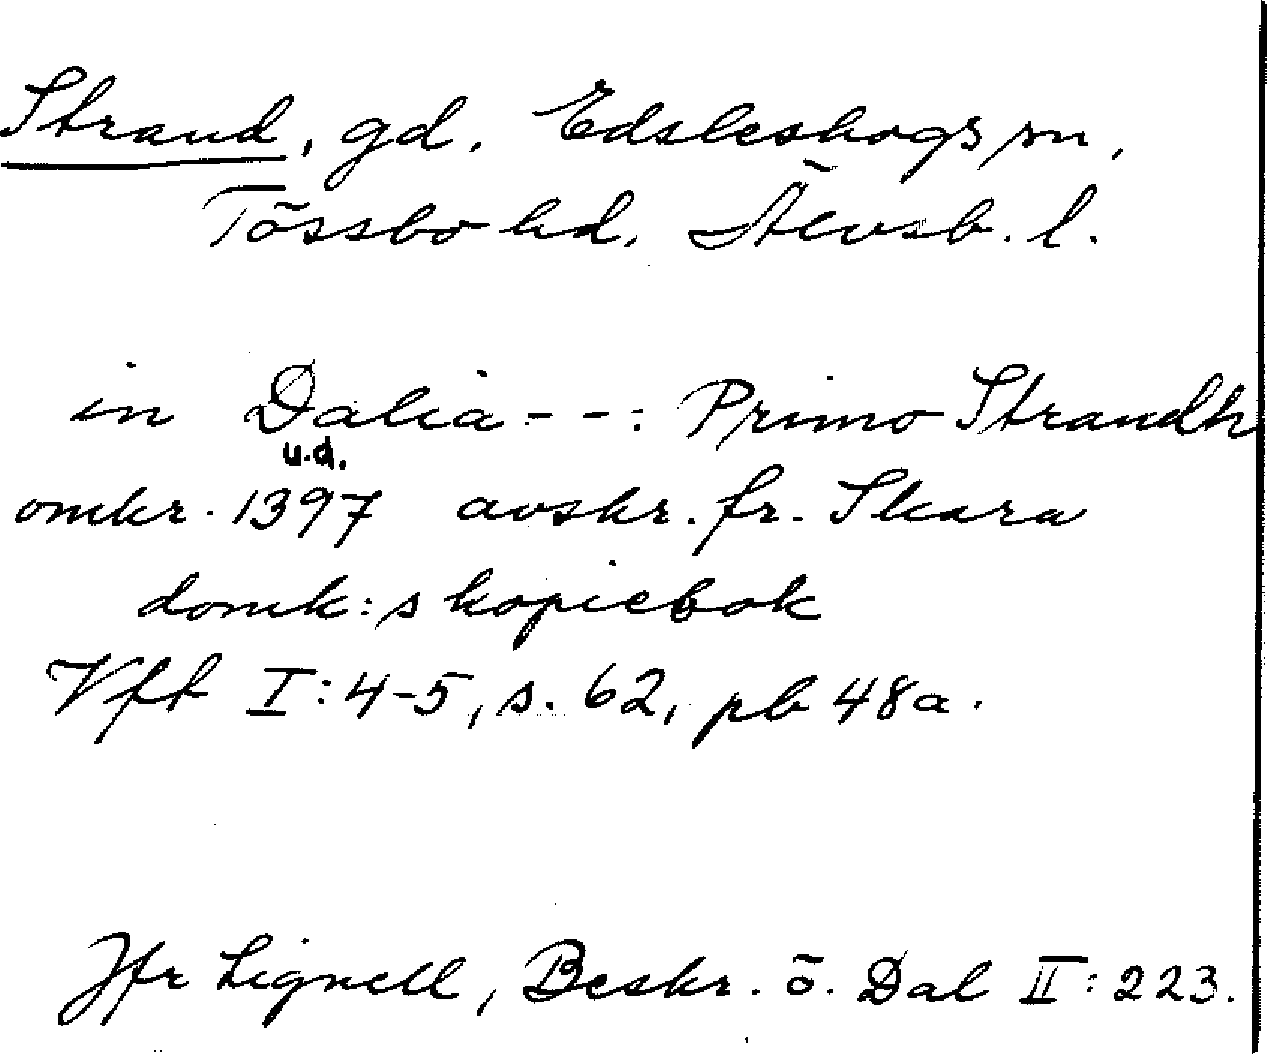 Strand, gd. Edsleskogs sn,
Tössbo hd, Älvsb. l.
in Dalia - - : Primo Strandh
u.d.
omkr. 1397 avskr. fr. Skara
domk:s kopiebok
Vff I:4-5, s. 62, pb 48a.
Jfr Lignell, Beskr. ö. Dal II:223.